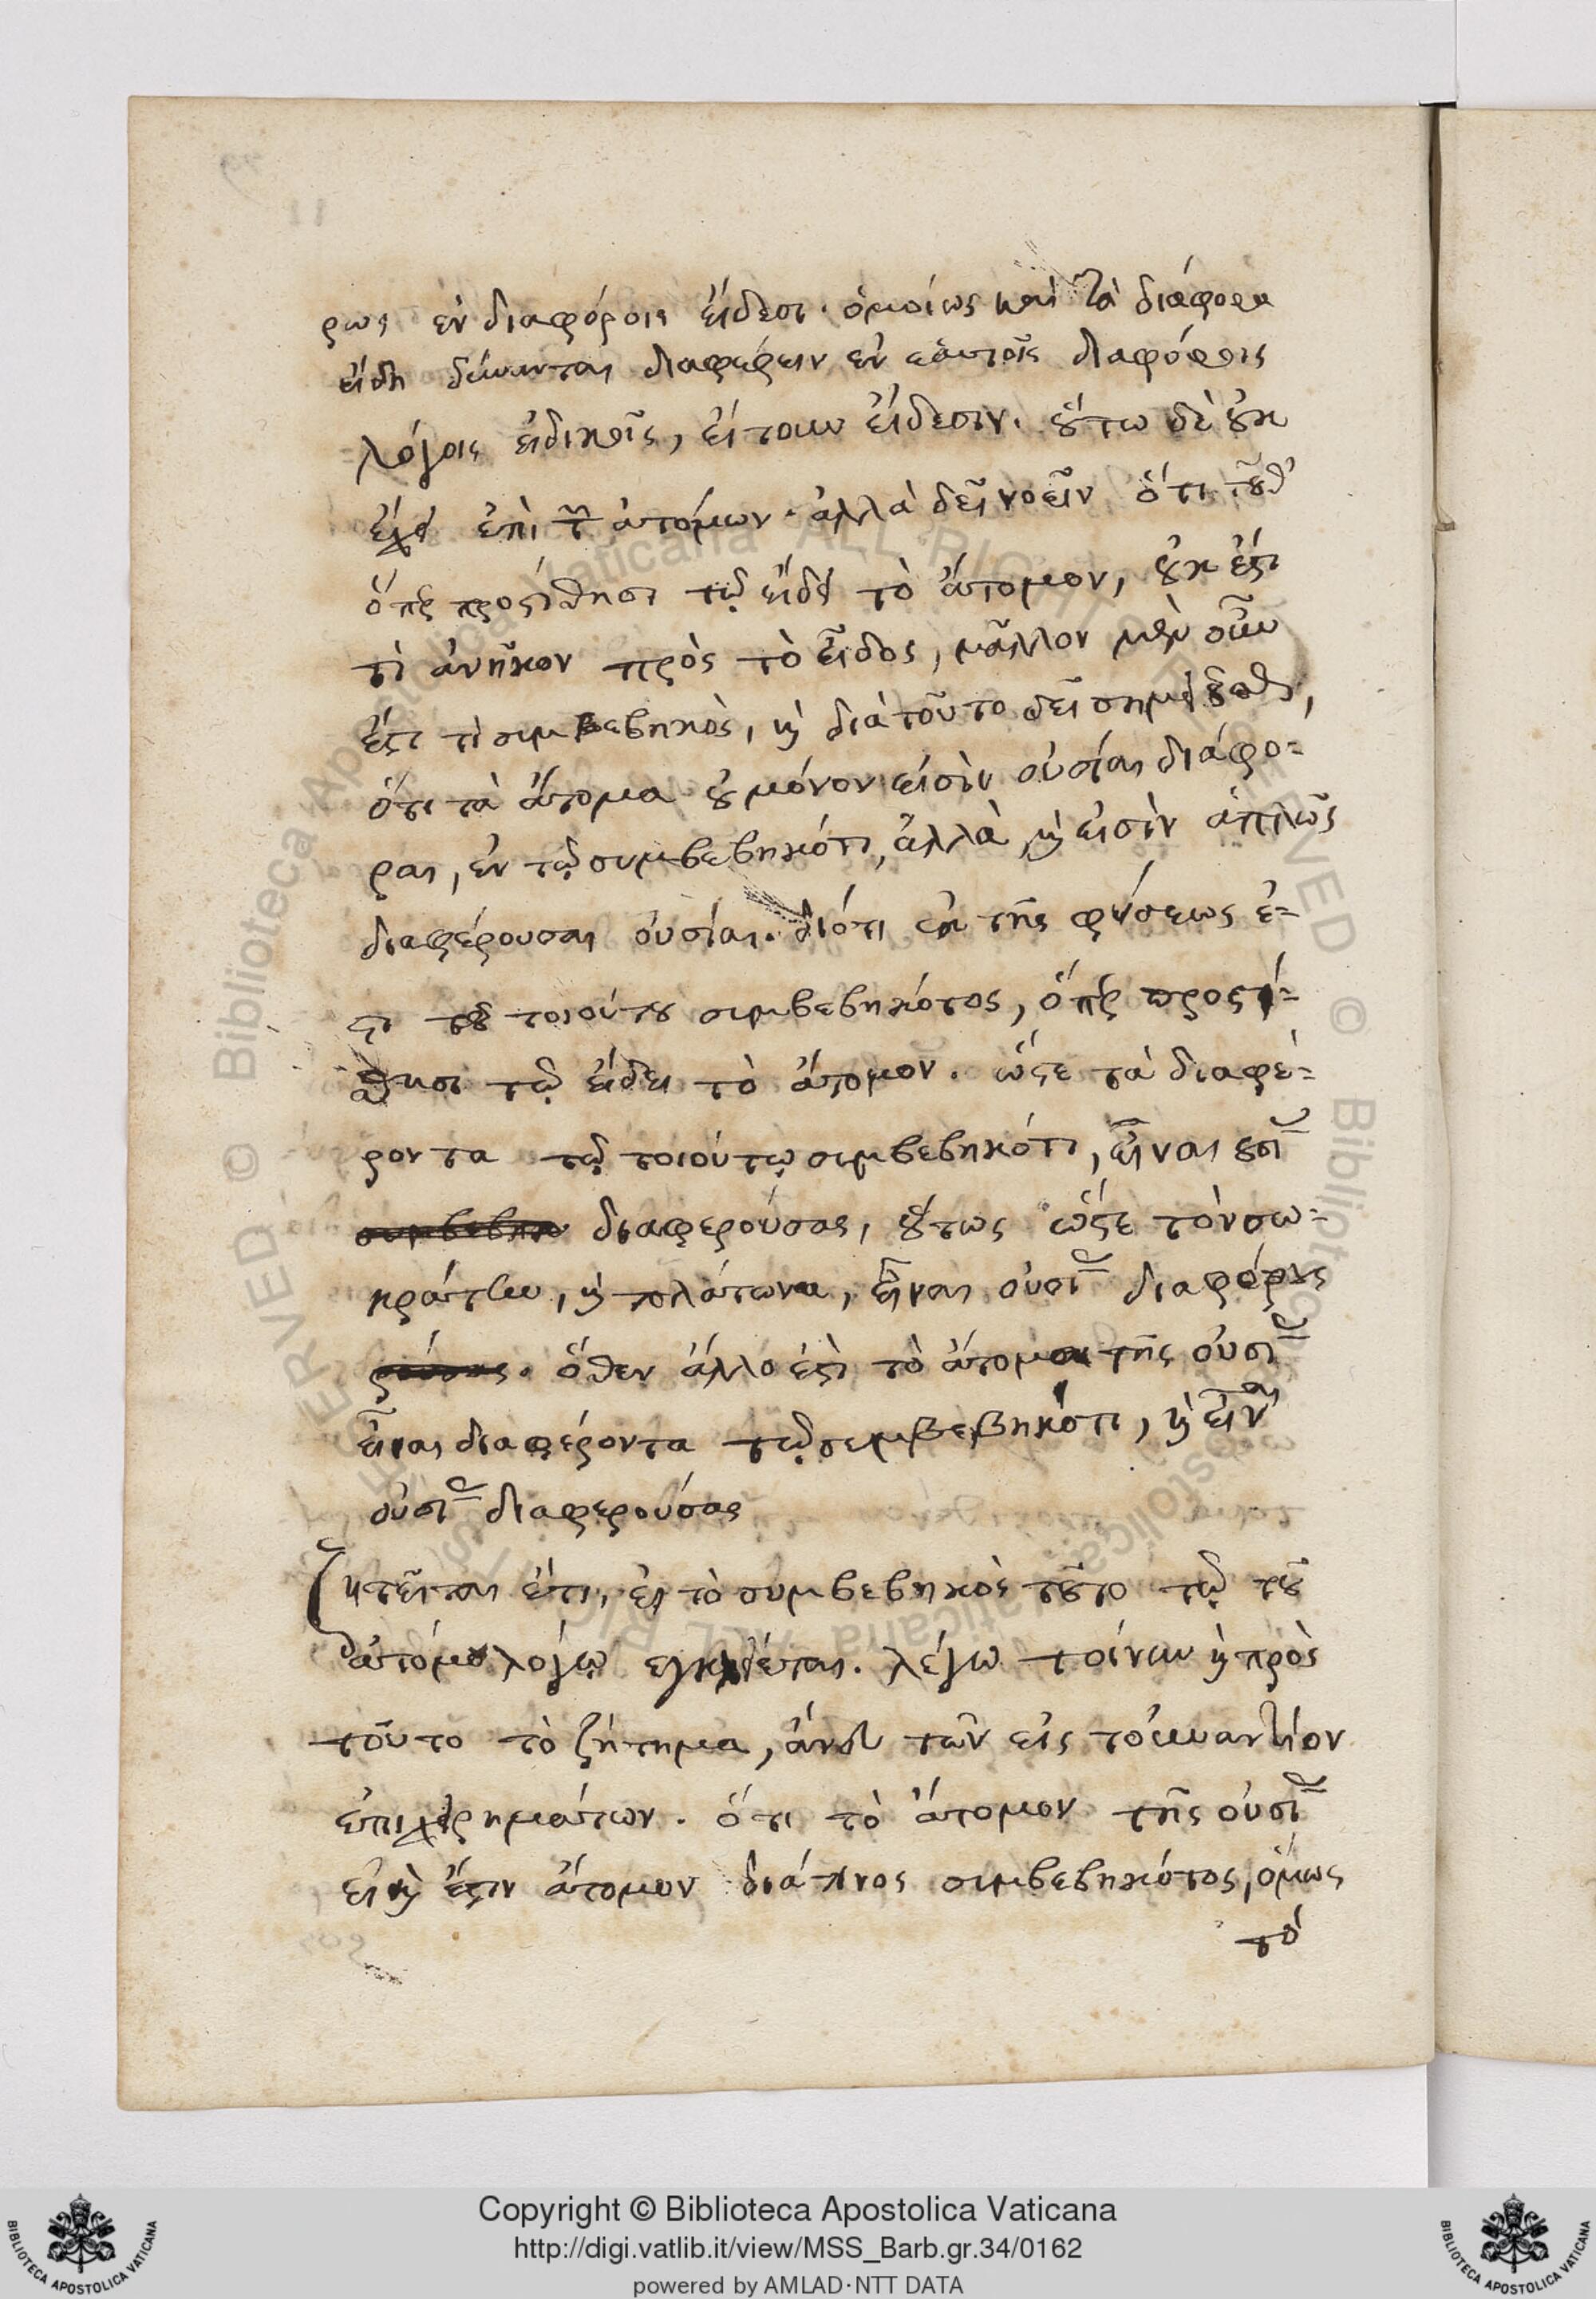 ρως ἐν διαφόροις εἴδεσι. ὁμοίως καὶ τὰ διάφορα
εἴδη δύνανται διαφέρειν ἐν ἑαυτοῖς διαφόροις
λόγοις εἰδικοῖς, εἴτουν εἴδεσιν. οὕτω δὲ οὐκ
ἔχει ἐπὶ τῶν ἀτόμων. ἀλλὰ δεῖ νοεῖν ὅτι τοῦθ'
ὅπερ προςίθησι τῷ εἴδει τὸ ἄτομον, οὐκ ἔςι
τὶ ἀνῆκον πρὸς τὸ εἶδος, μᾶλλον μὲν οὖν
ἔςι τὶ συμβεβηκὸς, κ διὰ τοῦτο δεῖ σημειοῦσθαι,
ὅτι τὰ ἄτομα οὐ μόνον εἰσὶν οὐσίαι διάφο-
ραι, ἐν τῷ συμβεβηκότι, ἀλλὰ κ εἰσὶν ἁπλῶς
διαφέρουσαι οὐσίαι. διότι ἐκ τῆς φύσεως ἐ-
ςι τοῦ τοιούτου συμβεβηκότος, ὅπερ προςί-
θησι τῷ εἴδει τὸ ἄτομον. ὥςε τὰ διαφέ-
ροντα τῷ τοιούτῳ συμβεβηκότι, εἶναι οὐσί
διαφερούσας, οὕτως ὥςε τὸν σω-
κράτην, κ πλάτωνα, εἶναι οὐσί διαφόρους
ὅθεν ἄλλο ἐςὶ τὸ ἄτομα τῆς οὐσί
εἶναι διαφέροντα τῷ συμβεβηκότι, κ εἶναι
οὐσί διαφερούσας
ζητεῖται ἔτι, εἰ τὸ συμβεβηκὸς τοῦτο τῷ τοῦ
ἀτόμου λόγῳ ἐγκλείεται. λέγω τοίνυν κ πρὸς
τοῦτο τὸ ζήτημα, ἀντὶ τῶν εἰς τοὐναντίον
ἐπιχειρημάτων. ὅτι τὸ ἄτομον τῆς οὐσί
εἰ κ ἔςιν ἄτομον διά τινος συμβεβηκότος, ὅμως
τὸ
Copyright © Biblioteca Apostolica Vaticana
http://digi.vatlib.it/view/MSS_Barb.gr.34/0162
powered by AMLAD·NTT DATA